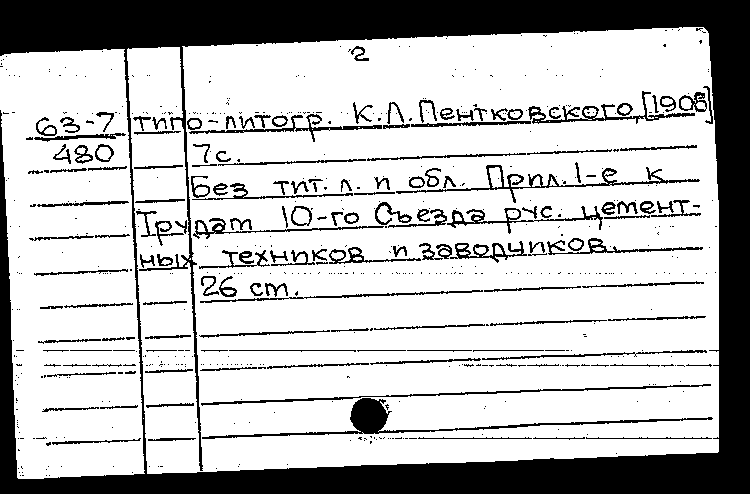 2
63-7 типо-литогр. К.Л.Пентковского, [1908]
480 7с.
Без тит. л. и обл. Прил. 1-е к
Трудам 10-го Съезда рус. цемент-
ных техников и заводчиков.
26 см.